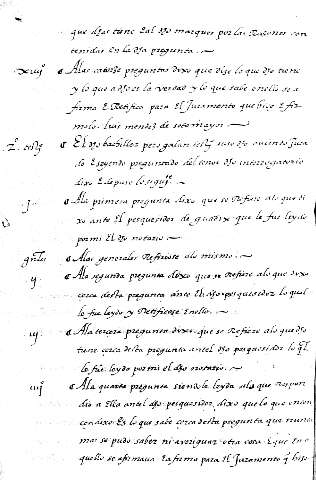 que dhos tiene y al dho marques por las Razones con
tenidas en la dha pregunta.
xiiij A las catorze preguntas dixo que dize lo que dho tiene
y lo que a dho es la verdad y lo que sabe en ello se a
firma e Retifica para el Juramento que hizo e fir
molo. luis mendez de sotomayor
El dho bachiller pero galan tº suso dho aviendo Jura
do e syendo preguntado del tenor dho interrogatorio
dixo e depuso lo siguiente
j A la primera pregunta dixo que se Refiere a lo que di
xo ante el pesquesidor de guadix que le fue leydo
por mi el dho notario.
A las generales Refiriose a lo mismo.
ij A la segunda pregunta dixo que se Refiere a lo que dixo
cerca desta pregunta ante el dho pesquesidor lo qual
le fue leydo y Retificose en ello.
iij A la tercera pregunta dixo que se Refiere a lo que dho
tiene cerca desta pregunta antel dho pesquesidor lo ql
le fue leydo por mi el dho notario.
iiij A la quarta pregunta siendo leyda a lo que Respon
dio a ella antel dho pesquesidor dixo que lo que enton
ces dixo Es lo que sabe cerca desta pregunta que nunca
mas se pudo saber ni averiguar otra cosa E que En a
quello se afirmava E afirma para El Juramento q hizo